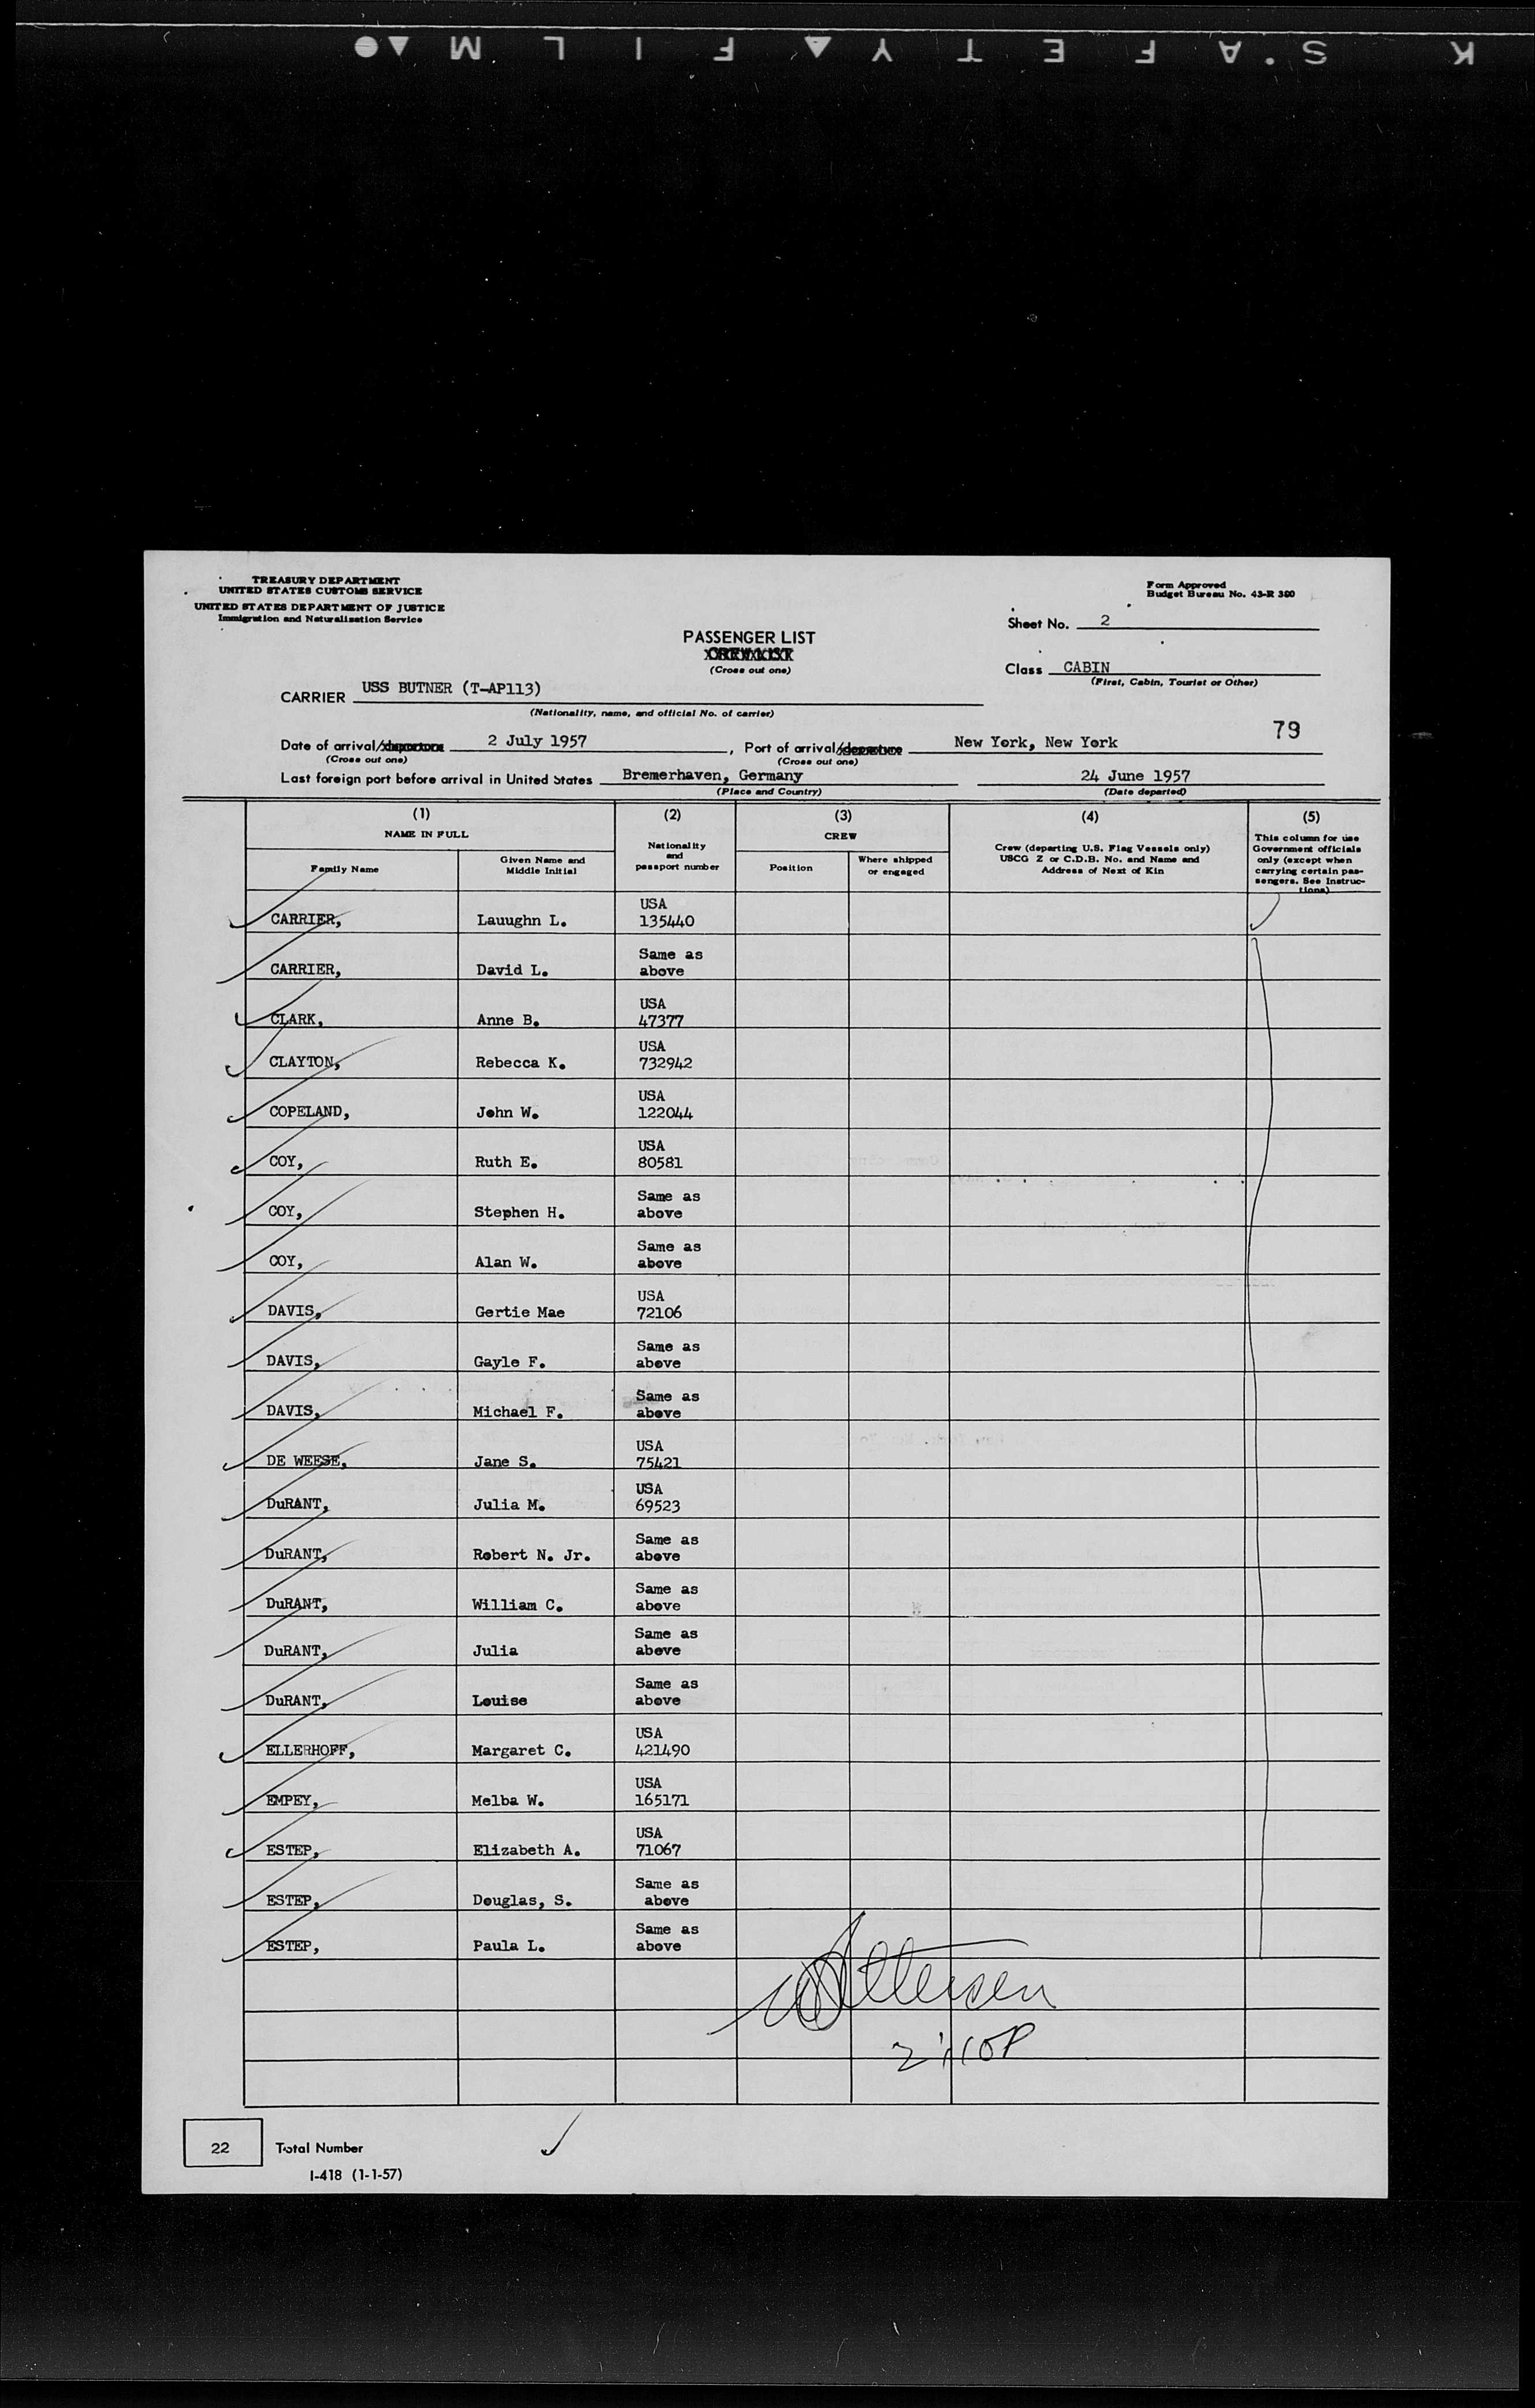 K S.AFETY▲FILM▲●
TREASURY DEPARTMENT
UNITED STATES CUSTOMS SERVICE
UNITED STATES DEPARTMENT OF JUSTICE
Immigration and Naturalization Service
Form Approved
Budget Bureau No. 43-R 380
Sheet No. 2
PASSENGER LIST
CREW LIST
(Cross out one)
Class CABIN
(First, Cabin, Tourist or Other)
CARRIER USS BUTNER (T-AP113)
(Nationality, name, and official No. of carrier)
79
Date of arrival/departure 2 July 1957, Port of arrival/departure New York, New York
(Cross out one) (Cross out one)
Last foreign port before arrival in United States Bremerhaven, Germany 24 June 1957
(Place and Country) (Date departed)
(1) (2) (3) (4) (5)
NAME IN FULL
Family Name
Given Name and
Middle Initial
Nationality
and
passport number
CREW
Position
Where shipped
or engaged
Crew (departing U.S. Flag Vessels only)
USCG Z or C.D.B. No. and Name and
Address of Next of Kin
This column for use
Government officials
only (except when
carrying certain pas-
sengers. See Instruc-
tions)
USA
CARRIER, Lauughn L. 135440
Same as
CARRIER, David L. above
USA
CLARK, Anne B. 47377
USA
CLAYTON, Rebecca K. 732942
USA
COPELAND, John W. 122044
USA
COY, Ruth E. 80581
Same as
COY, Stephen H. above
Same as
COY, Alan W. above
USA
DAVIS, Gertie Mae 72106
Same as
DAVIS, Gayle F. above
Same as
DAVIS, Michael F. above
USA
DE WEESE, Jane S. 75421
USA
DuRANT, Julia M. 69523
Same as
DuRANT, Robert N. Jr. above
Same as
DuRANT, William C. above
Same as
DuRANT, Julia above
Same as
DuRANT, Louise above
USA
ELLERHOFF, Margaret C. 421490
USA
EMPEY, Melba W. 165171
USA
ESTEP, Elizabeth A. 71067
Same as
ESTEP, Douglas, S. above
Same as
ESTEP, Paula L. above
22 Total Number
I-418 (1-1-57)